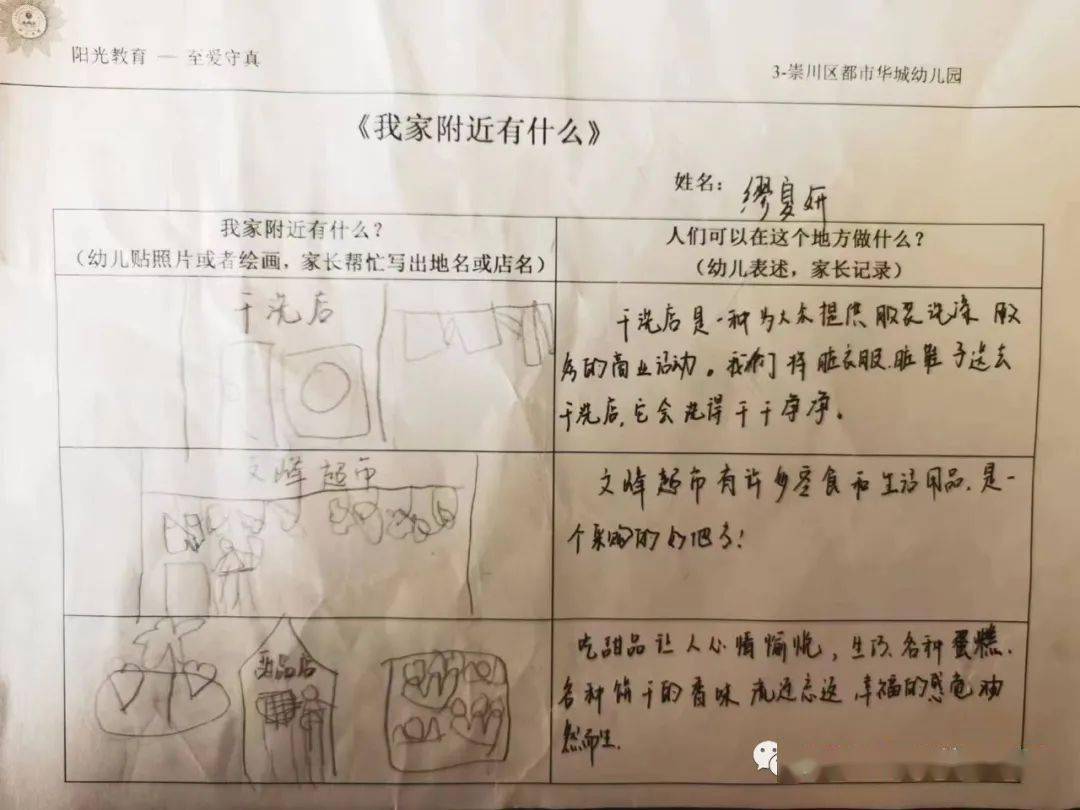 阳光教育 — 至爱守真
3-崇川区都市华城幼儿园
《我家附近有什么》
姓名：缪夏妍
我家附近有什么？
（幼儿贴照片或者绘画，家长帮忙写出地名或店名）
人们可以在这个地方做什么？
（幼儿表述，家长记录）
干洗店
干洗店是一种为大众提供服装洗涤服
务的商业活动。我们将脏衣服.脏鞋子送去
干洗店，它会洗得干干净净。
文峰超市
文峰超市有许多零食和生活用品，是一
个采购的好地方！
甜品店
吃甜品让人心情愉悦，生巧.各种蛋糕.
各种饼干的香味流连忘返，幸福的感觉油
然而生.